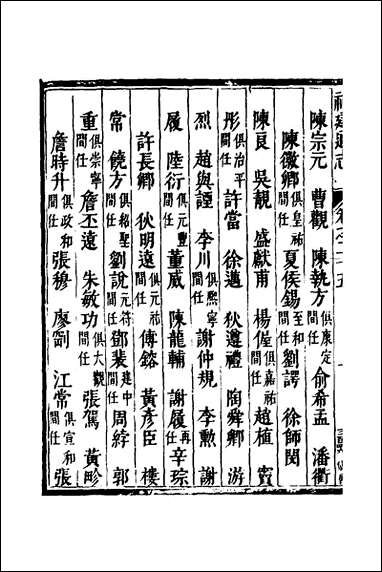 福建通志 卷之二十五
陳宗元 曹觀 陳執方 俱康定間任 俞希孟 潘衢
陳徽卿 俱皇祐間任 夏侯錫 至和間任 劉諤 徐師閔
陳良 吳靚 盛獻甫 楊偓 俱嘉祐間任 趙植 竇
彤 俱治平間任 許當 徐遘 狄遵禮 陶舜卿 游
烈 趙與諲 李川 俱熙寧間任 謝仲規 李勲 謝
履 陸衍 俱元豐間任 董威 陳龍輔 謝履 再任 辛琮
許長卿 狄明遠 俱元祐間任 傅鎔 黃彥臣 樓
常 饒方 俱紹聖間任 劉說 元符間任 鄧裴 建中間任 周綍 郭
重 俱崇寧間任 詹丕遠 朱敏功 俱大觀間任 張駕 黃畛
詹時升 俱政和間任 張穆 廖劄 江常 俱宣和間任 張